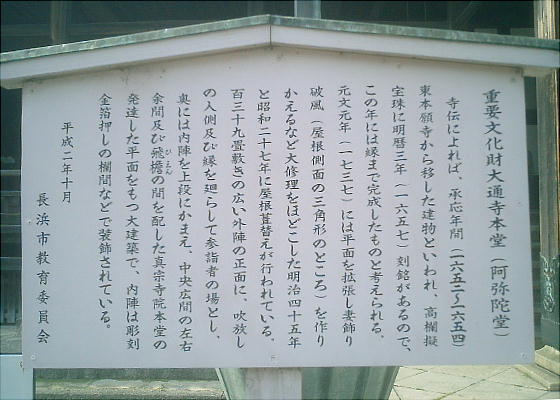 重要文化財大通寺本堂（阿弥陀堂）
寺伝によれば、承応年間（一六五二〜一六五四）
東本願寺から移した建物といわれ、高欄擬
宝珠に明暦三年（一六五七）刻銘があるので、
この年には縁まで完成したものと考えられる。
元文元年（一七三七）には平面を拡張し妻飾り
破風（屋根側面の三角形のところ）を作り
かえるなど大修理をほどこした明治四十五年
と昭和二十七年に屋根葺替えが行われている。
百三十九畳敷きの広い外陣の正面に、吹放し
の入側及び縁を廻らして参詣者の場とし、
奥には内陣を上段にかまえ、中央広間の左右
余間及び飛檐の間を配した真宗寺院本堂の
ひえん
発達した平面をもつ大建築で、内陣は彫刻
金箔押しの欄間などで装飾されている。
平成二年十月
長浜市教育委員会